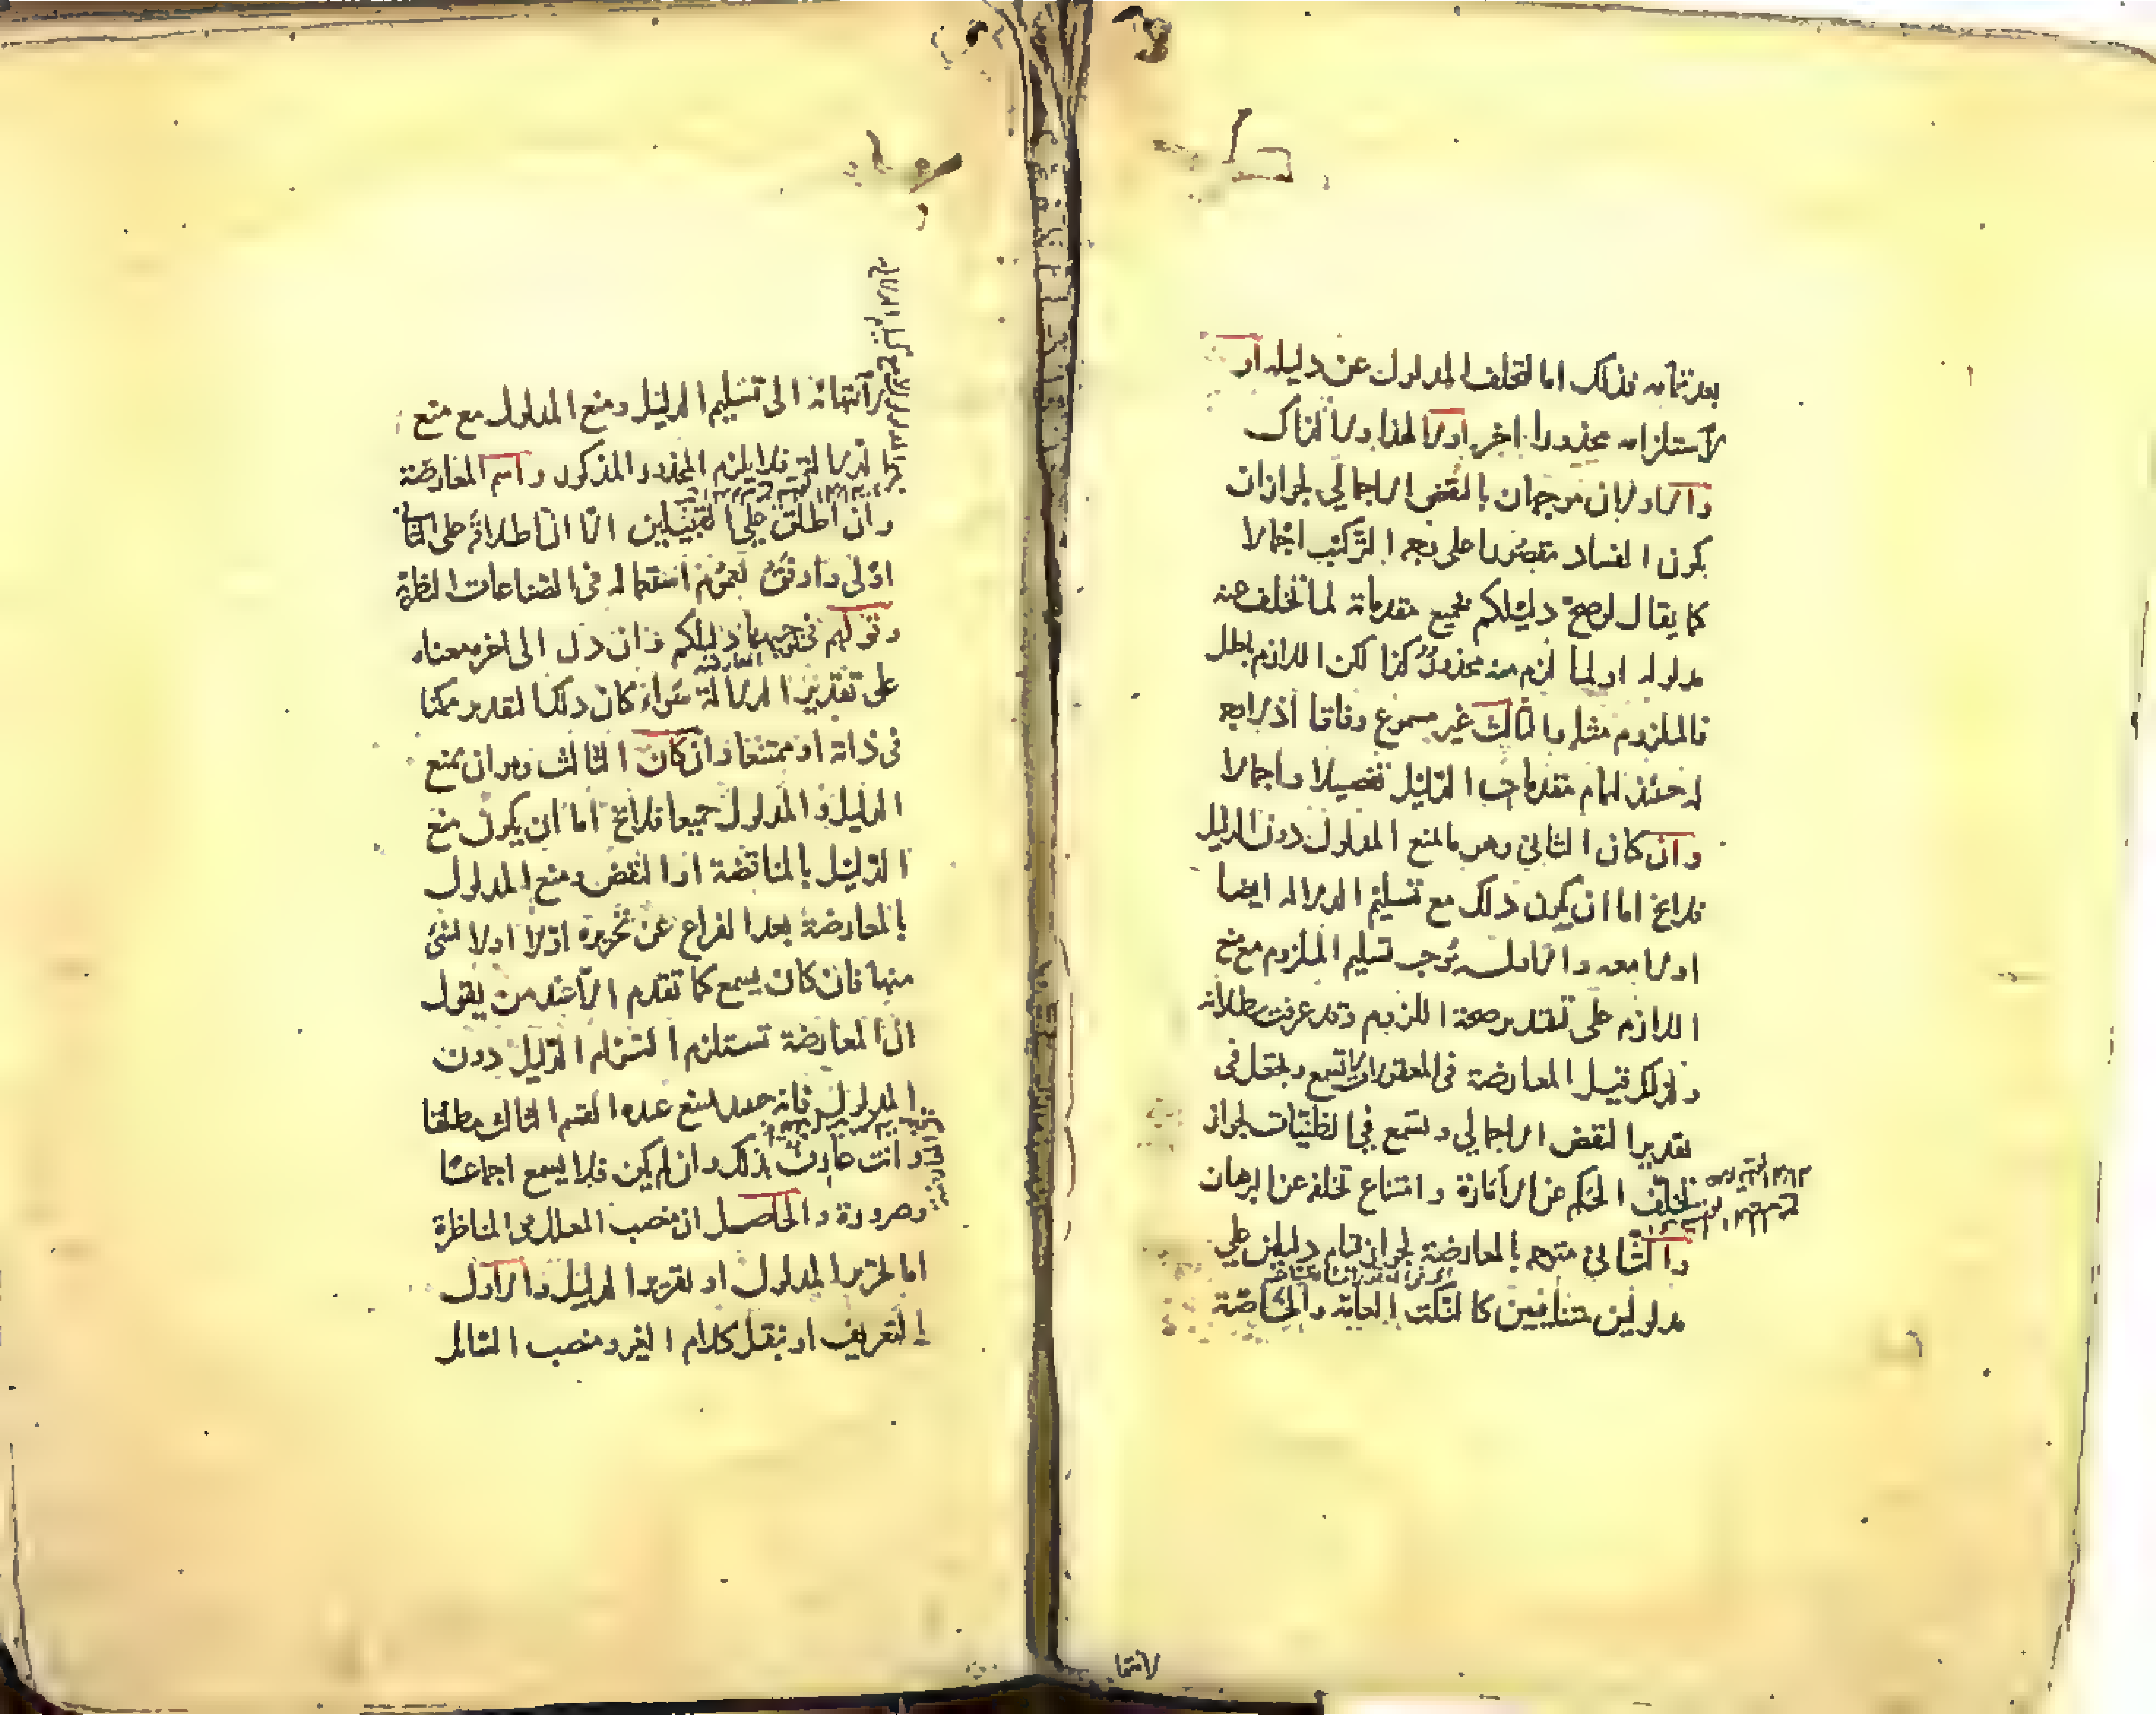 بعد تمامه فذلك اما لتخلف المدلول عن دليله او
لاستلزامه محذورا اخر اولا لهذا ولا لذاك
والاولان موجهان بالنقض الاجمالي لجواز ان
يكون الفساد مقصورا على وجه التركيب اجمالا
كما يقال لو صح دليلكم بجميع مقدماته لما تخلف عنه
مدلوله او لما لزم منه محذور كذا لكن اللازم بطل
فالملزوم مثله والثالث غير مسموع وفاقا اذ لا وجه
له حينئذ لتمام مقدمات الدليل تفصيلا واجمالا
وان كان الثاني وهو ما لمنع المدلول دون الدليل
فلا يخ اما ان يكون ذلك مع تسليم الدلالة ايضا
اولا معه والاول يوجب تسليم الملزوم مع منع
اللازم على تقدير صحة اللزوم وقد عرفت بطلانه
ولذلك قيل المعارضة في المعقولات لا تسمع ويجعل في
تقدير النقض الاجمالي وتسمع في الظنيات لجواز
تخلف الحكم عن الامارة وامتناع تخلفه عن البرهان
والثاني متوجه بالمعارضة لجواز قيام دليلين على
مدلولين متنافيين كالنكت العامة والخاصة
لانتها
لانتهائه الى تسليم الدليل ومنع المدلول مع منع
الدلالة فلا يلزم المحذور المذكور واسم المعارضة
وان اطلق على القبيلين الا ان اطلاقه على الثاني
اولى واوفق لعموم استعماله في الصناعات النظرية
وقولهم في توجيهها دليلكم وان دل الى اخره معناه
على تقدير الدلالة سواء كان ذلك التقدير ممكنا
في ذاته او ممتنعا وان كان الثالث وهو ان يمنع
الدليل والمدلول جميعا فلا يخ اما ان يكون منع
الدليل بالمناقضة او النقض ومنع المدلول
بالمعارضة بعد الفراغ عن تحريره اولا اولا لشئ
منها فان كان يسمع كما تقدم الا عند من يقول
ان المعارضة تستلزم التزام الدليل دون
المدلول فانه حينئذ يمنع عنده القسم الثالث مطلقا
وانت عارف بذلك وان لم يكن فلا يسمع اجماعا
وضرورة والحاصل ان منصب المعلل في المناظرة
اما تحرير المدلول او تقرير الدليل والاول
بالتعريف او بنقل كلام الغير ومنصب السائل